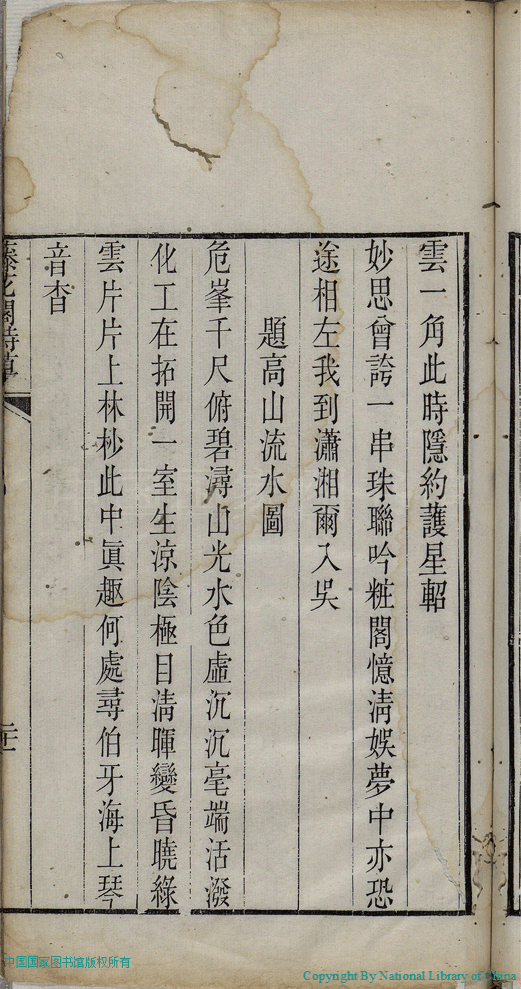 雲一角此時隱約護星軺
妙思曾誇一串珠聯吟粧閣憶清娛夢中亦恐
途相左我到瀟湘爾入吳
題高山流水圖
危峯千尺俯碧潯山光水色虛沉沉毫端活潑
化工在拓開一室生涼陰極目清暉變昏曉綠
雲片片上林杪此中眞趣何處尋伯牙海上琴
音杳
藤花閣詩草
二十一
中国国家图书馆版权所有
Copyright By National Library of China